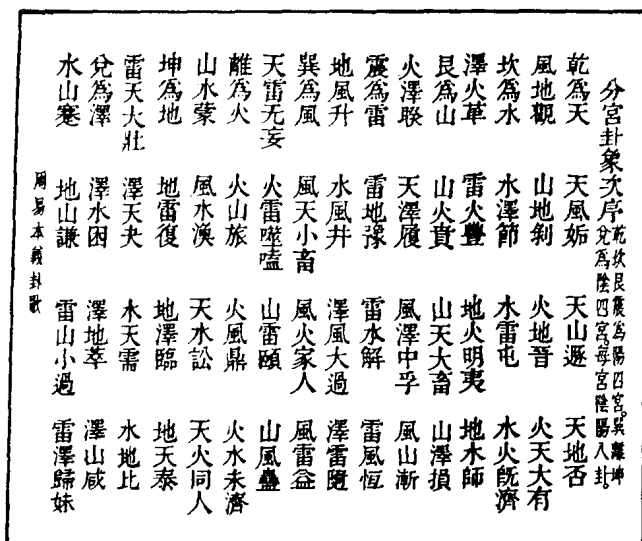 分宮卦象次序
乾坎艮震為陽四宮。巽離坤
兌為陰四宮。每宮陰陽八卦。
乾為天 天風姤 天山遯 天地否
風地觀 山地剝 火地晉 火天大有
坎為水 水澤節 水雷屯 水火旣濟
澤火革 雷火豐 地火明夷 地水師
艮為山 山火賁 山天大畜 山澤損
火澤睽 天澤履 風澤中孚 風山漸
震為雷 雷地豫 雷水解 雷風恒
地風升 水風井 澤風大過 澤雷隨
巽為風 風天小畜 風火家人 風雷益
天雷无妄 火雷噬嗑 山雷頤 山風蠱
離為火 火山旅 火風鼎 火水未濟
山水蒙 風水渙 天水訟 天火同人
坤為地 地雷復 地澤臨 地天泰
雷天大壯 澤天夬 水天需 水地比
兌為澤 澤水困 澤地萃 澤山咸
水山蹇 地山謙 雷山小過 雷澤歸妹
周易本義卦歌